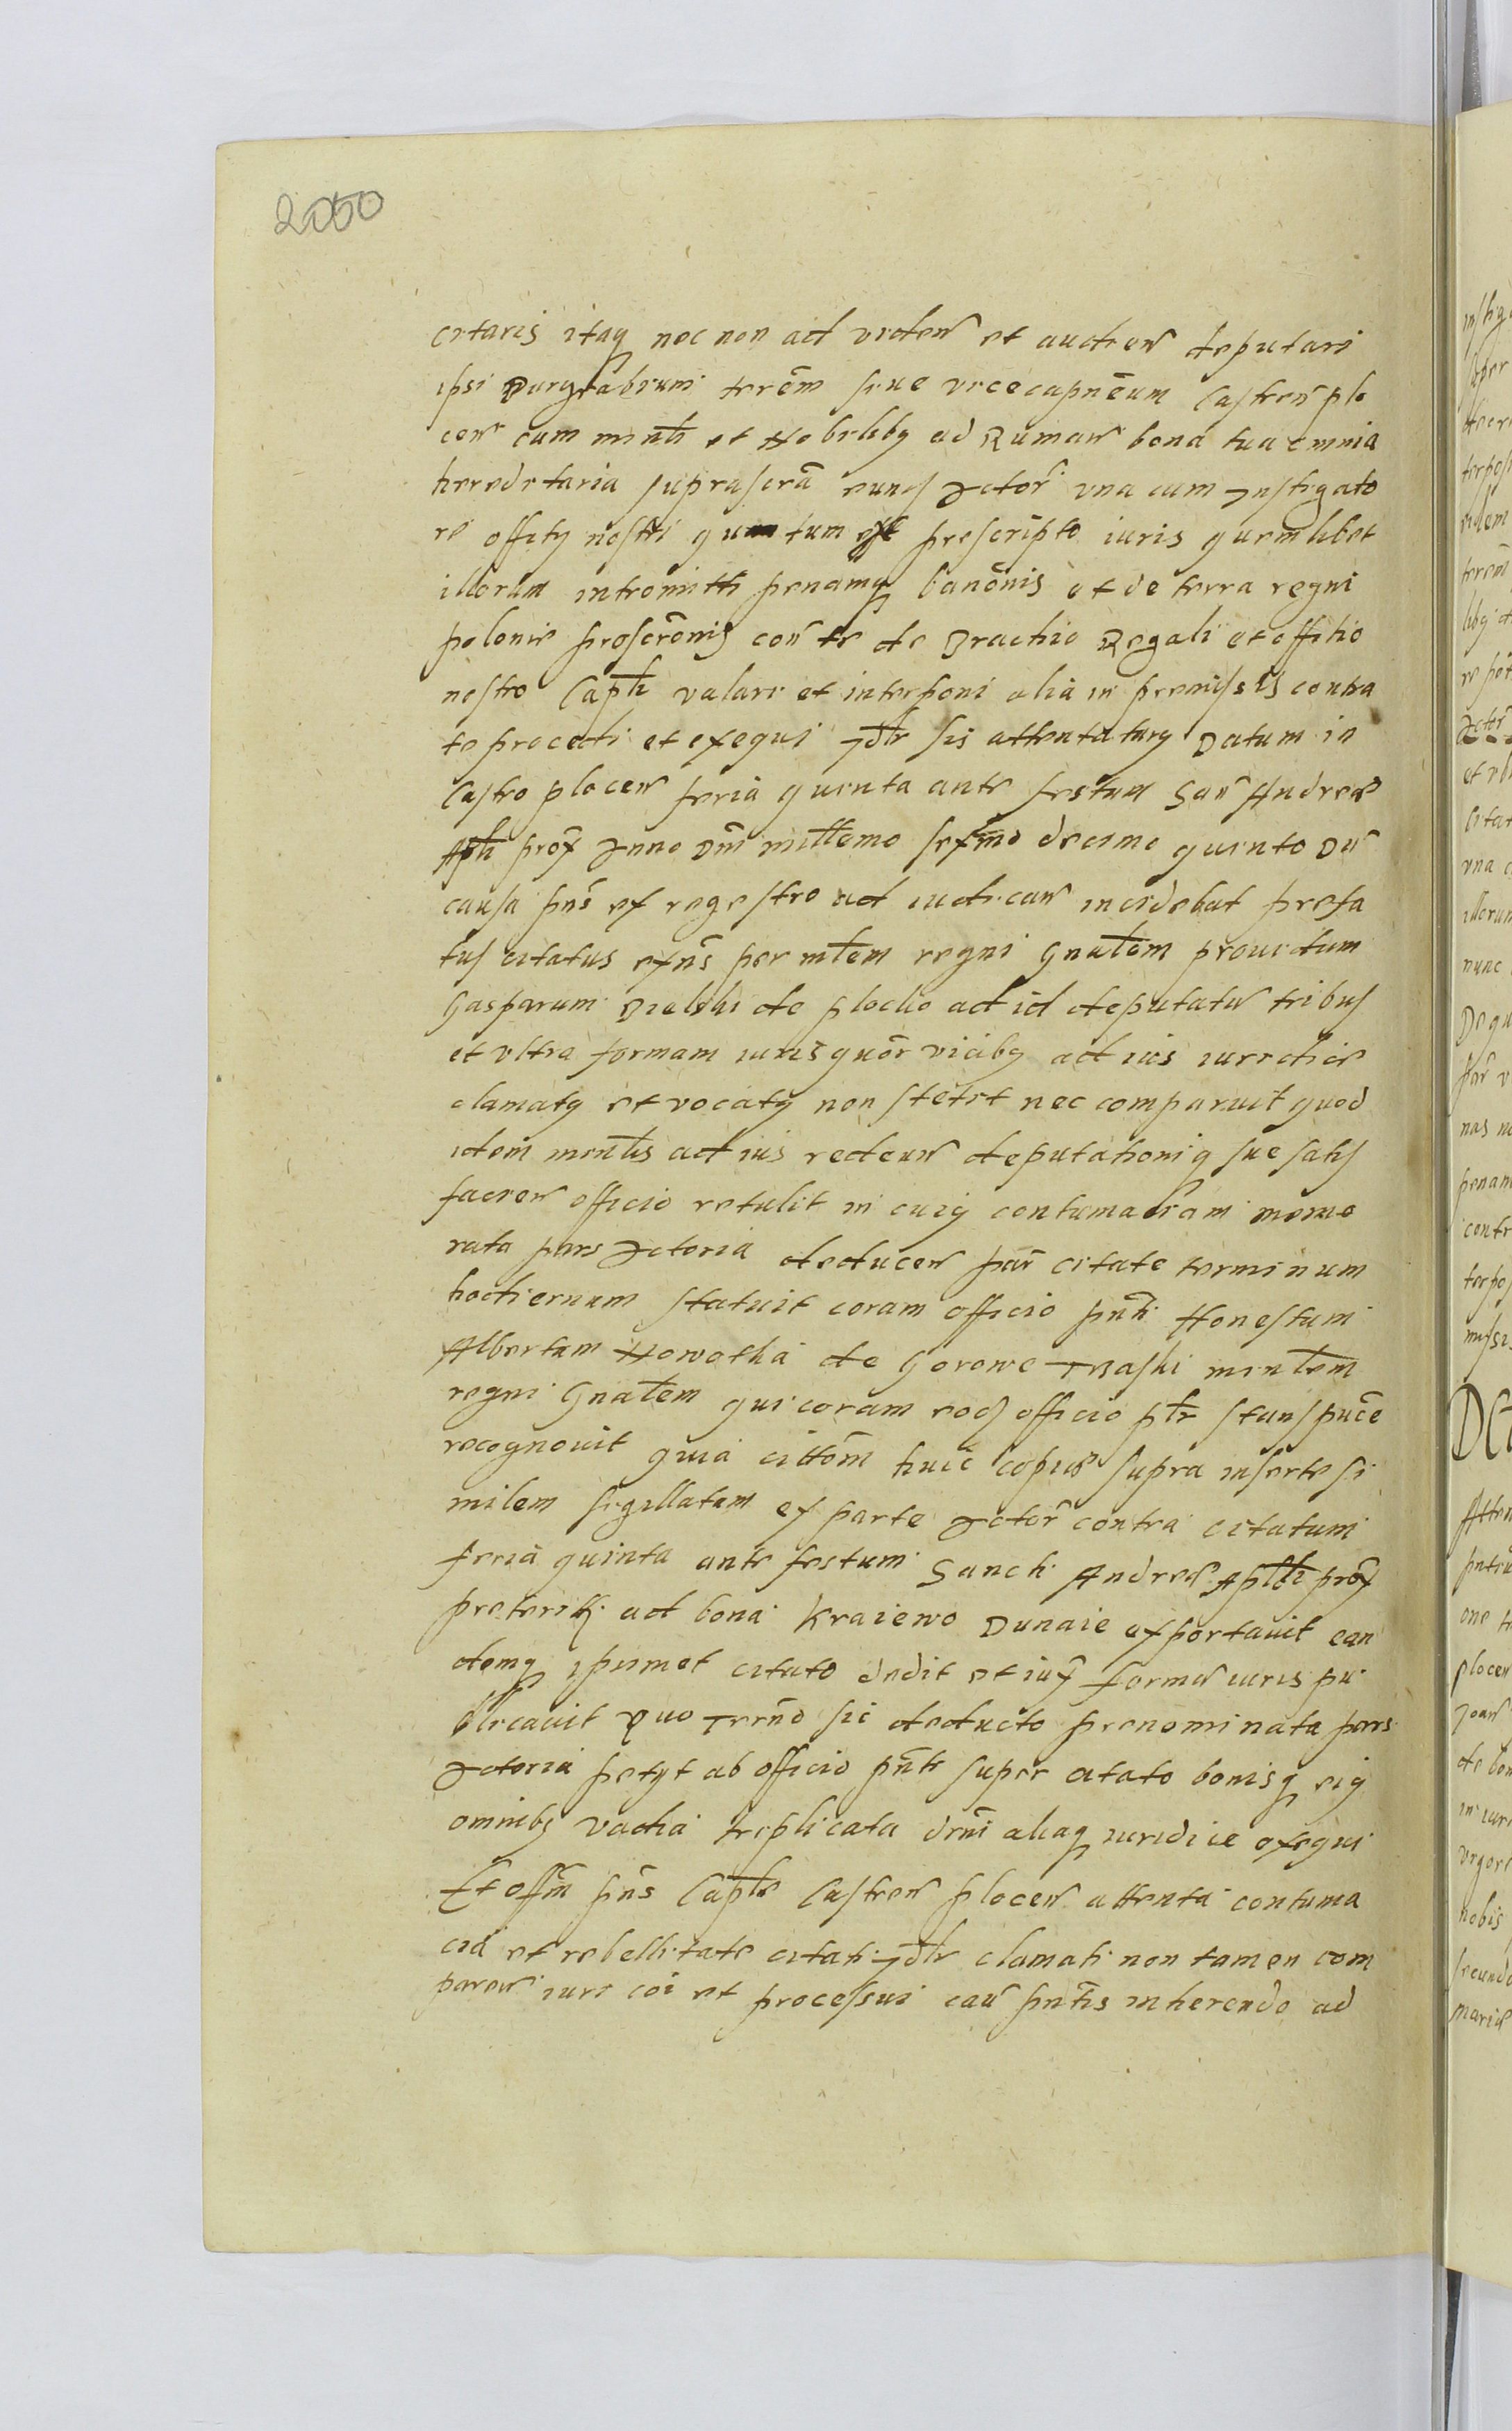 2050
citaris itaq nec non ad viden et audien deputari
ipsi Burgrabium terrem siue vicecapneum Castren plo
cen cum minli et Nobilibq ad Ruman bona tua omnia
hereditaria suprascra eund Actor vna cum Instigato
re offitij nostri quantum est prescripto iuris quemlibet
illorum intromitti penamq banonis et de terra regni
polonie proscronis con te de Brachio Regali et offitio
nostro Capli valari et interponi alia in premissis contra
te procedi et exequi Idlr sis attentaturq Datum in
Castro plocen feria quinta ante festum San Andree
Apli prox Anno Dni millemo sexmo decimo quinto Du
causa pns ex regestro ad iudican incidebat prefa
tus citatus exns per mlem regni Gnalem prouidum
Gasparum Bielski de plocko ad id deputatu tribus
et vltra formam iuris quor vicibq ad ius iuridice
clamatq et vocatq non stetit nec comparuit quod
idem minlis ad ius redeun deputationiq sue satis
facien officio retulit in cuiq contumaciam memo
rata pars Actoria deducen par citate terminum
hodiernum statuit coram officio pnti Honestum
Albertum Nowothka de Gorowo Traski minlem
regni Gnalem qui coram eod officio plr stans puce
recognouit quia cittom huic copie supra inserte si
milem sigillatam ex parte Actor contra citatum
feria quinta ante festum Sancti Andree Apli prox
preterit ad bona Kraiewo Dunaie exportauit ean
demq ipsimet citato dedit et iux forma iuris pu
blicauit Quo Termo sic deducto prenominata pars
Actoria petijt ab officio pnti super citato bonisq eiq
omnibq vadia triplicata drni aliaq iuridice exequi
Et offm pns Caple Castren plocen attenta contuma
cia et rebellitate citati Idlr clamati non tamen com
paren iuri coi et processui cau pntis inherendo ad